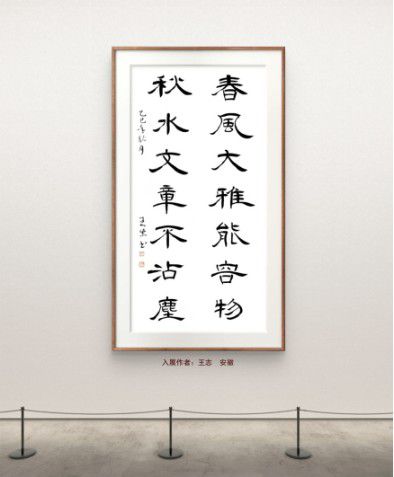 春風大雅能容物
秋水文章不沾塵
乙巳年秋月
王志书
入展作者：王志 安徽